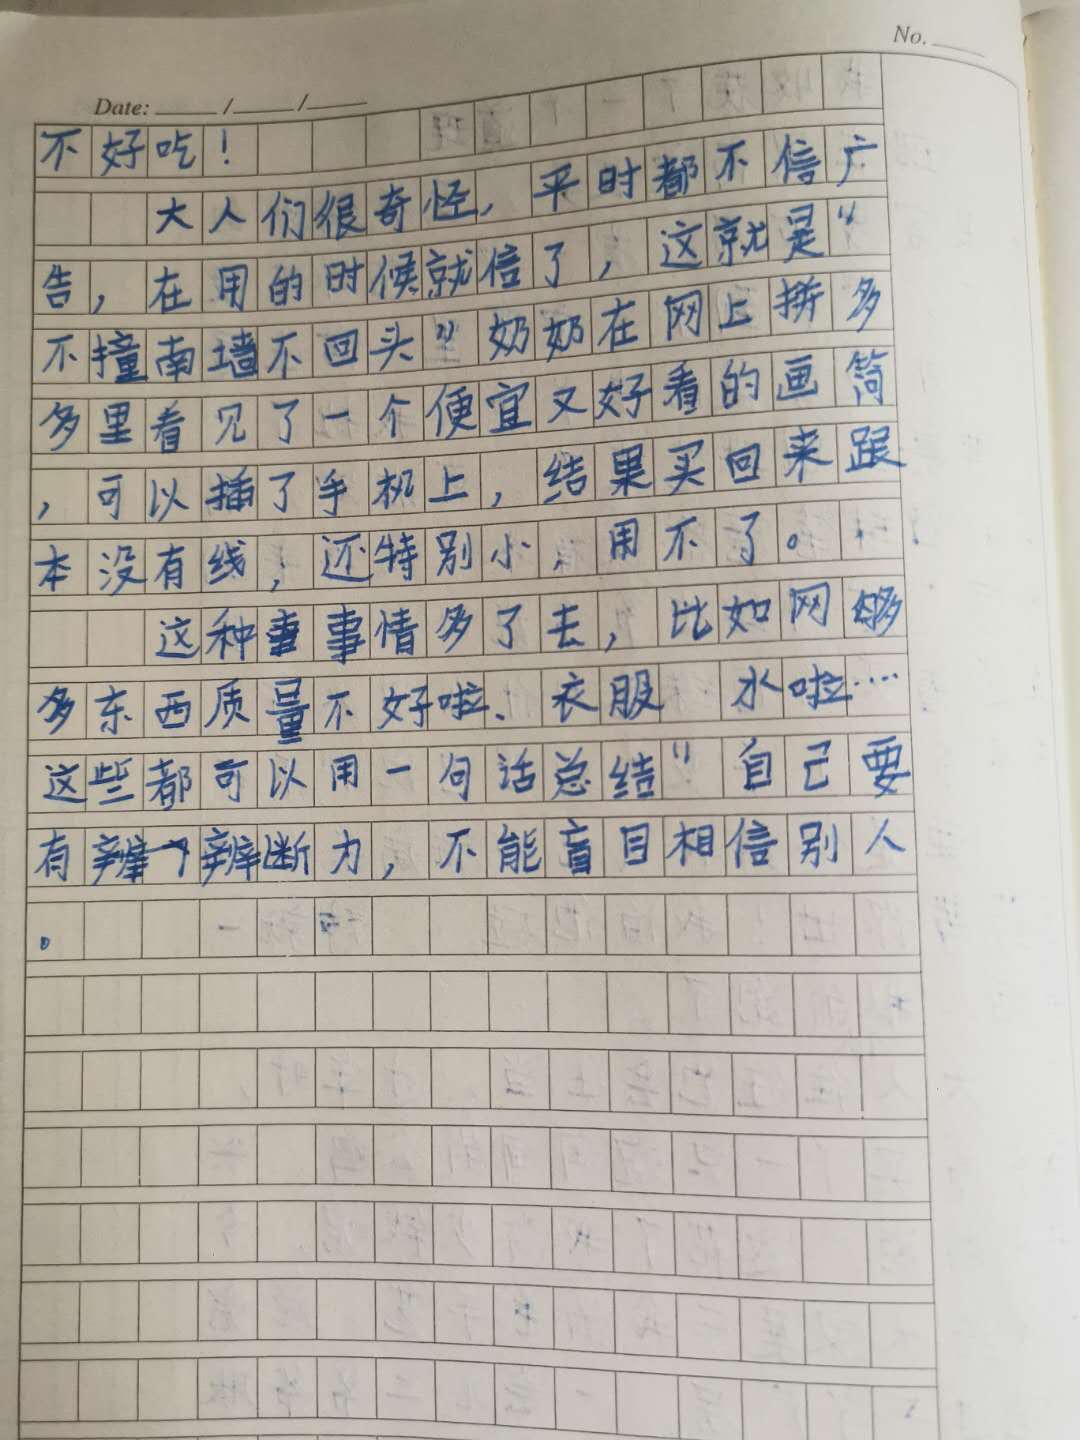 No.
Date: / /
不好吃！
大人们很奇怪，平时都不信广
告，在用的时候就信了，这就是“
不撞南墙不回头”奶奶在网上拼多
多里看见了一个便宜又好看的画筒
，可以插了手机上，结果买回来跟
本没有线，还特别小，用不了。
这种事事情多了去，比如网
多东西质量不好啦、衣服 水啦…
这些都可以用一句话总结“自己要
有辨辨断力，不能盲目相信别人
。